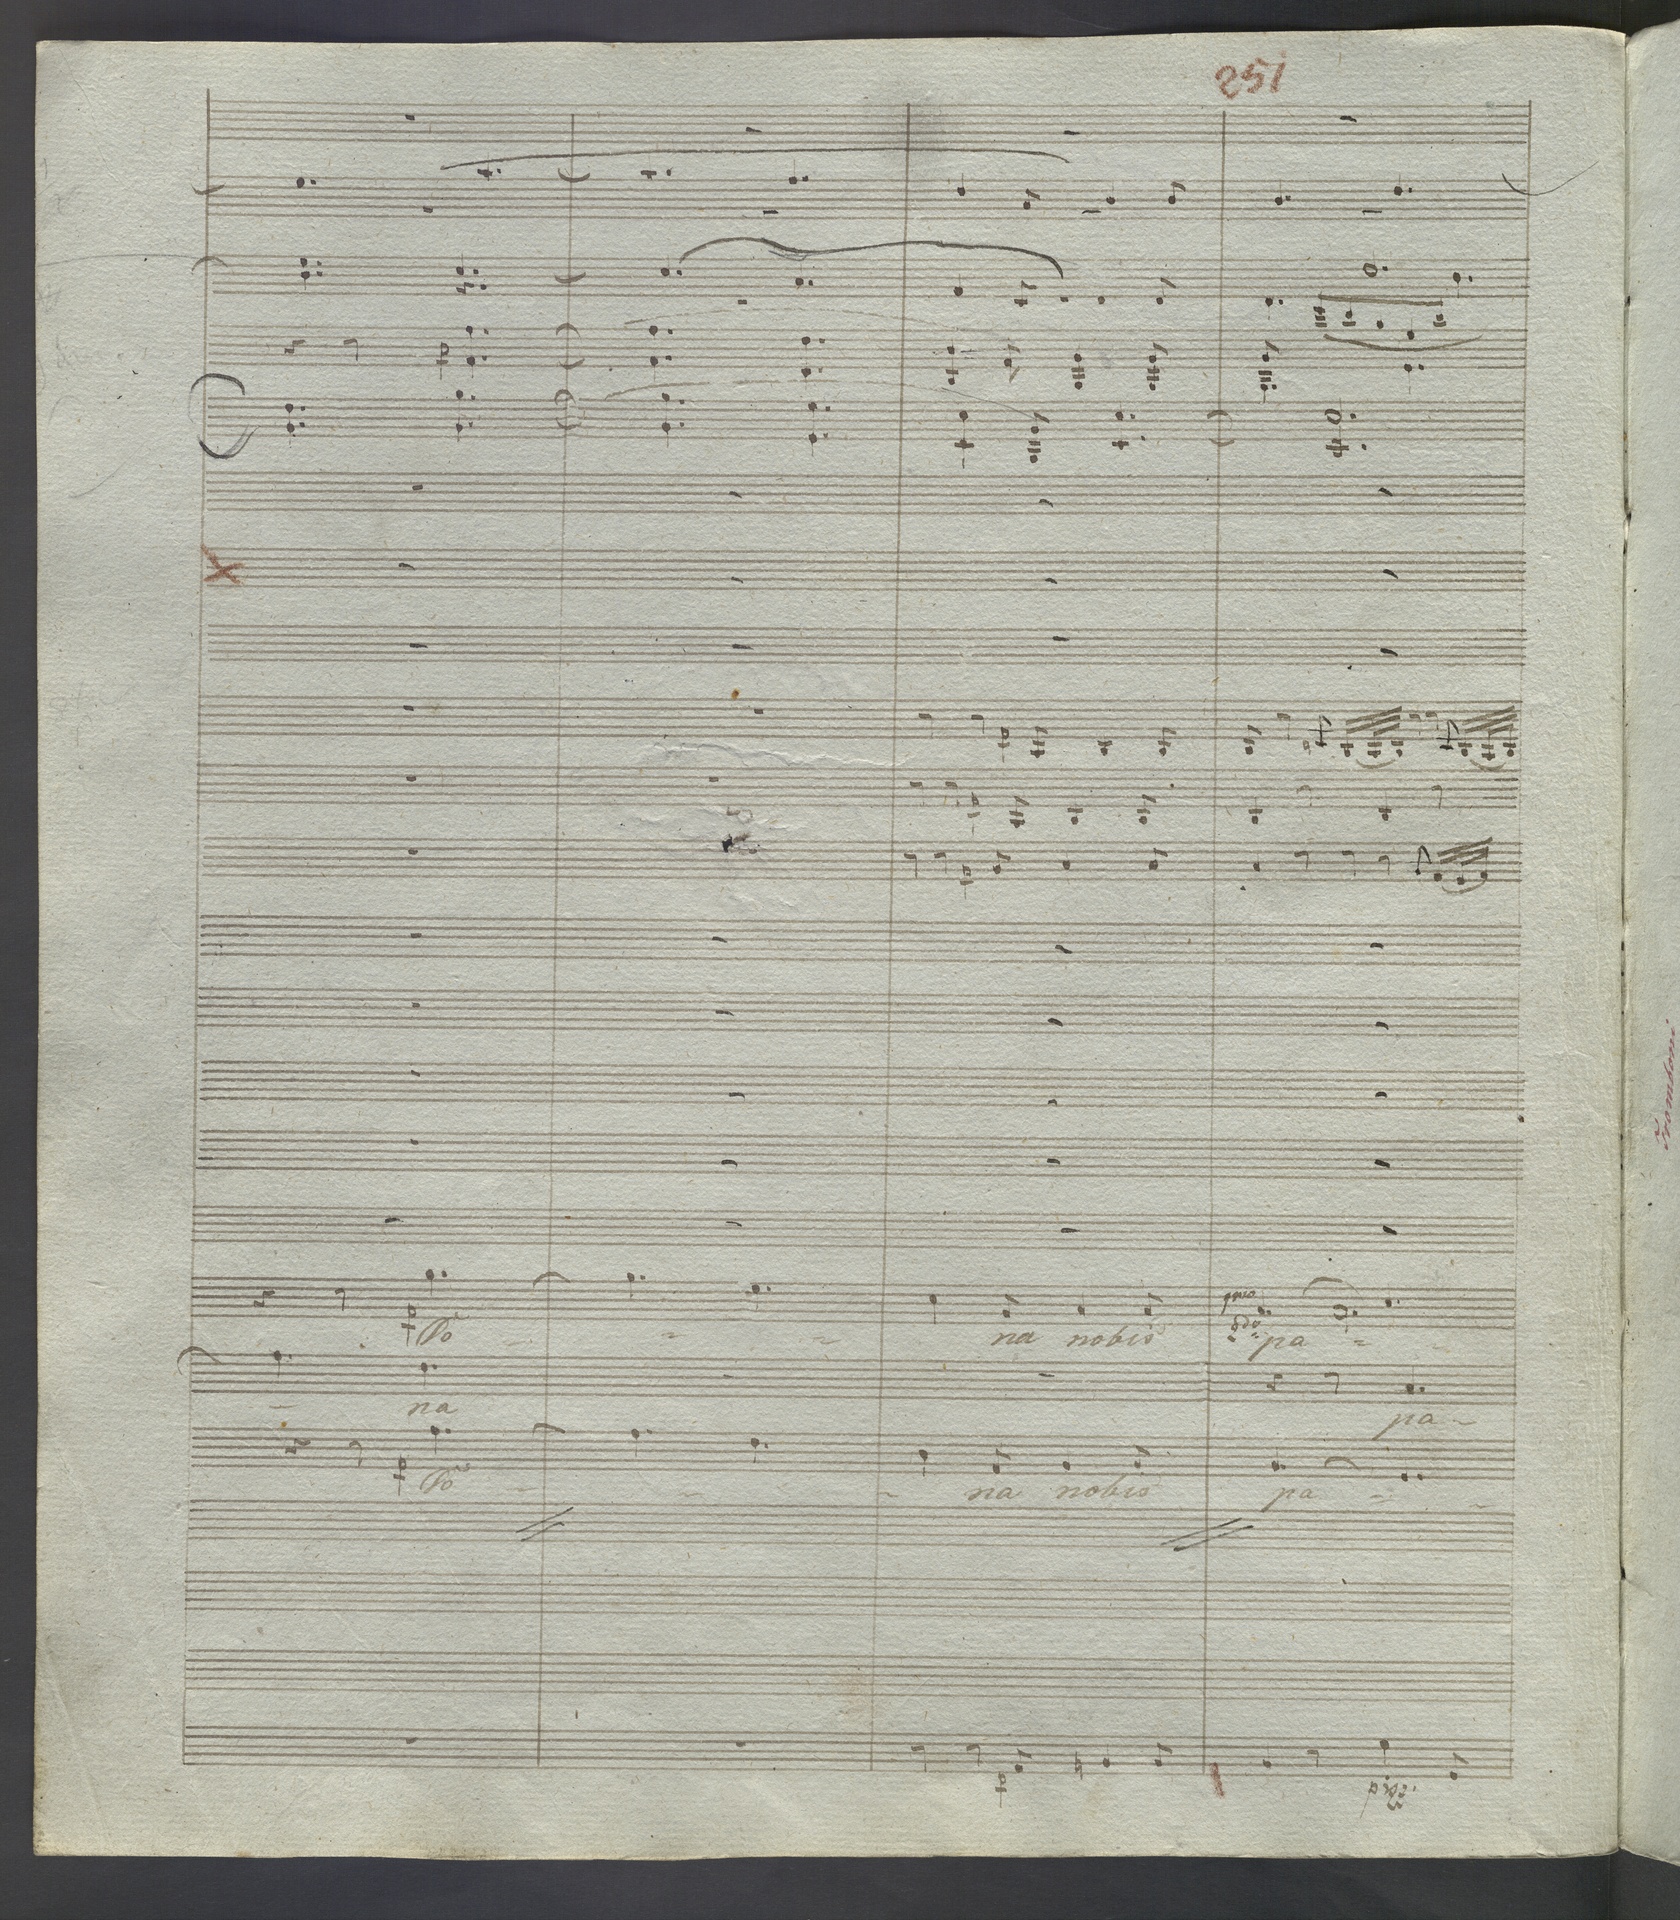 251
Do na nobis pa
na pa
Do na nobis pa
pizz:
Tromboni